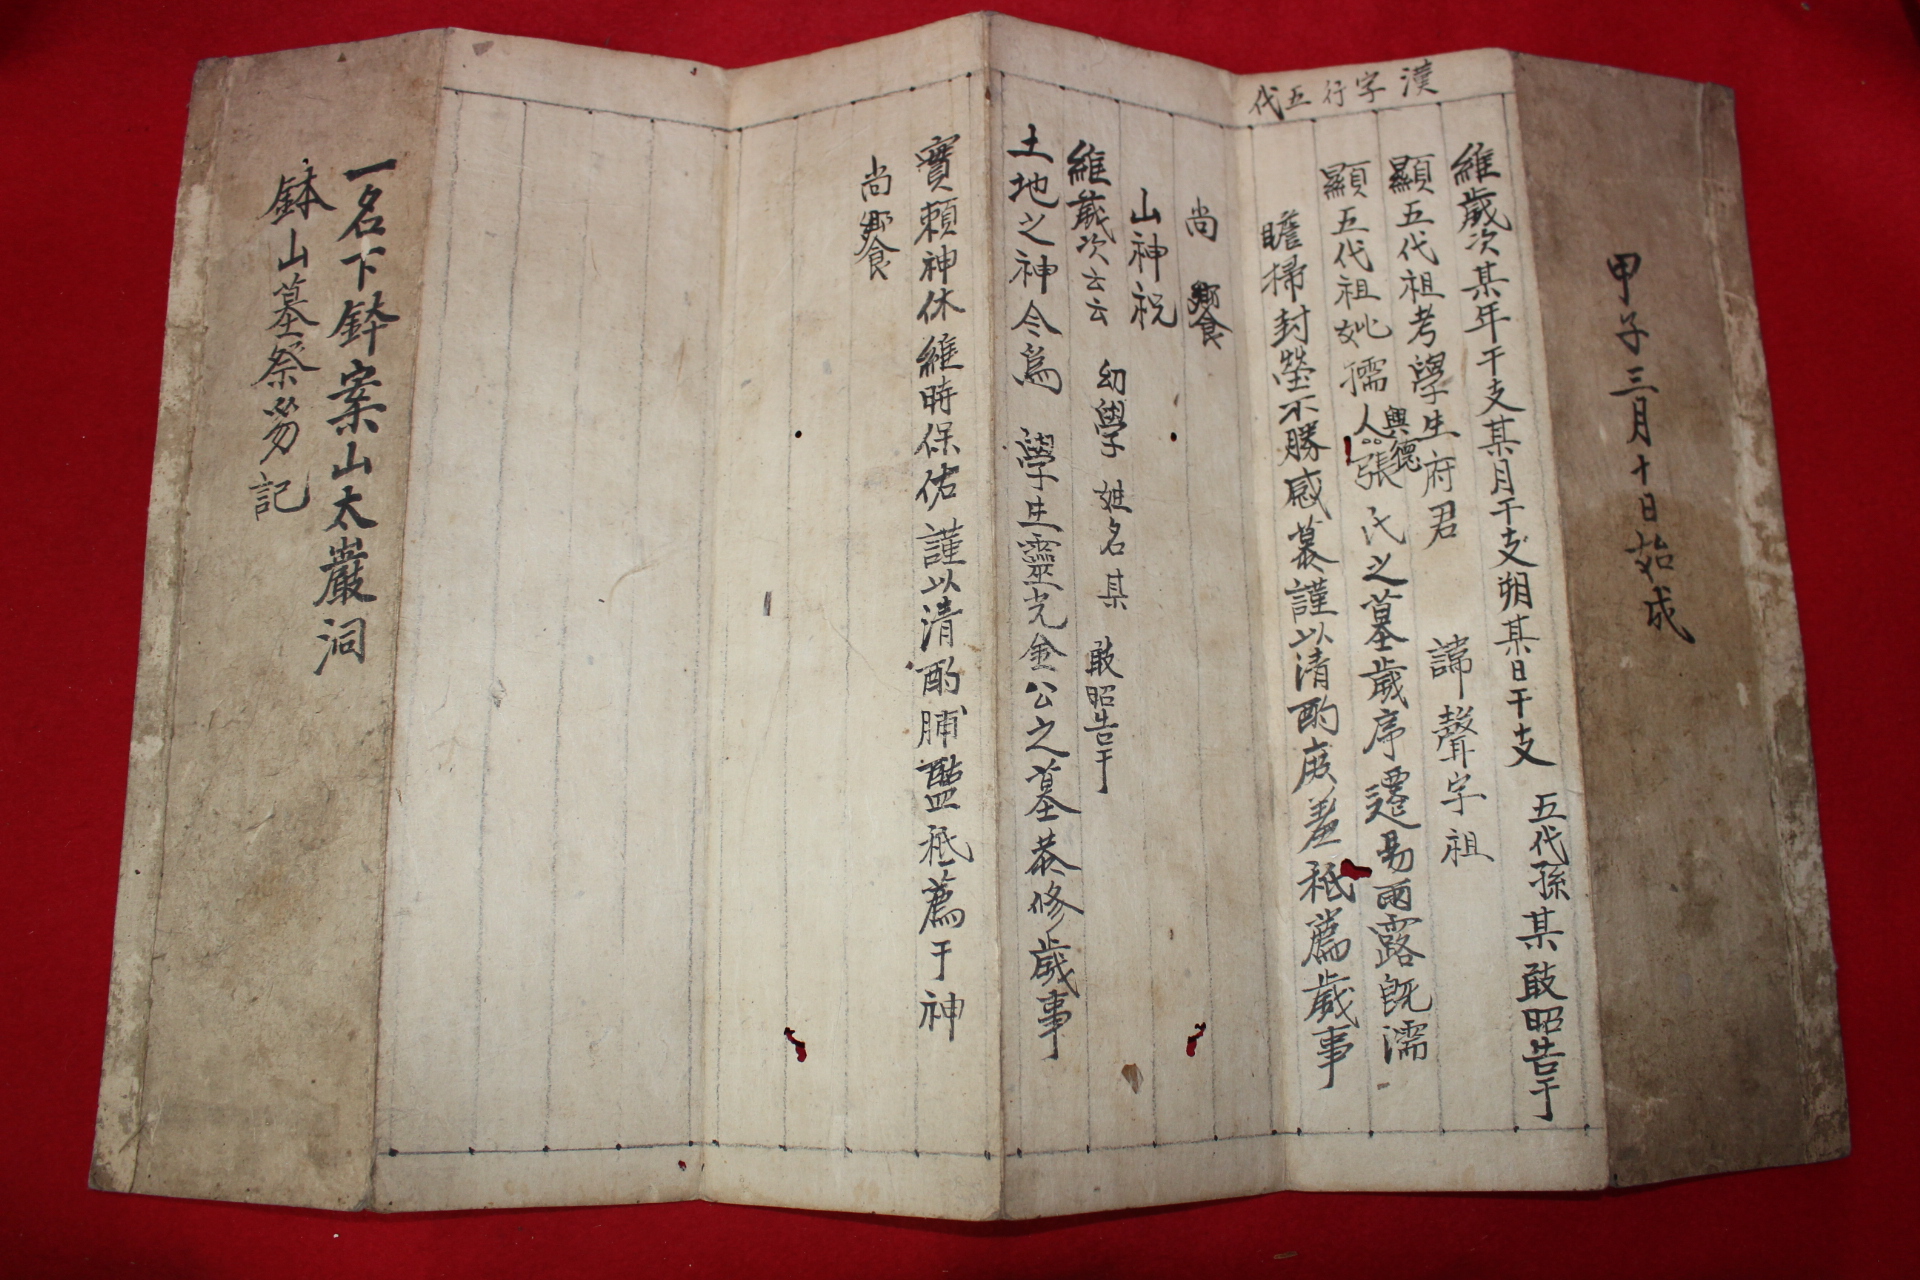 甲子三月十日始成
漢字行五代
維歲次某年干支某月干支朔某日干支 五代孫某敢昭告于
顯五代祖考學生府君 諱聲字祖
顯五代祖妣孺人興德張氏之墓歲序遷易雨露旣濡
瞻掃封塋不勝感慕謹以清酌庶羞祗薦歲事
尚 饗
山神祝
維歲次云云 幼學 姓名某 敢昭告于
土地之神今爲 學生靈光金公之墓恭修歲事
實賴神休維時保佑謹以清酌脯醢祗薦于神
尚饗
一名下鉢案山太巖洞
鉢山墓祭笏記